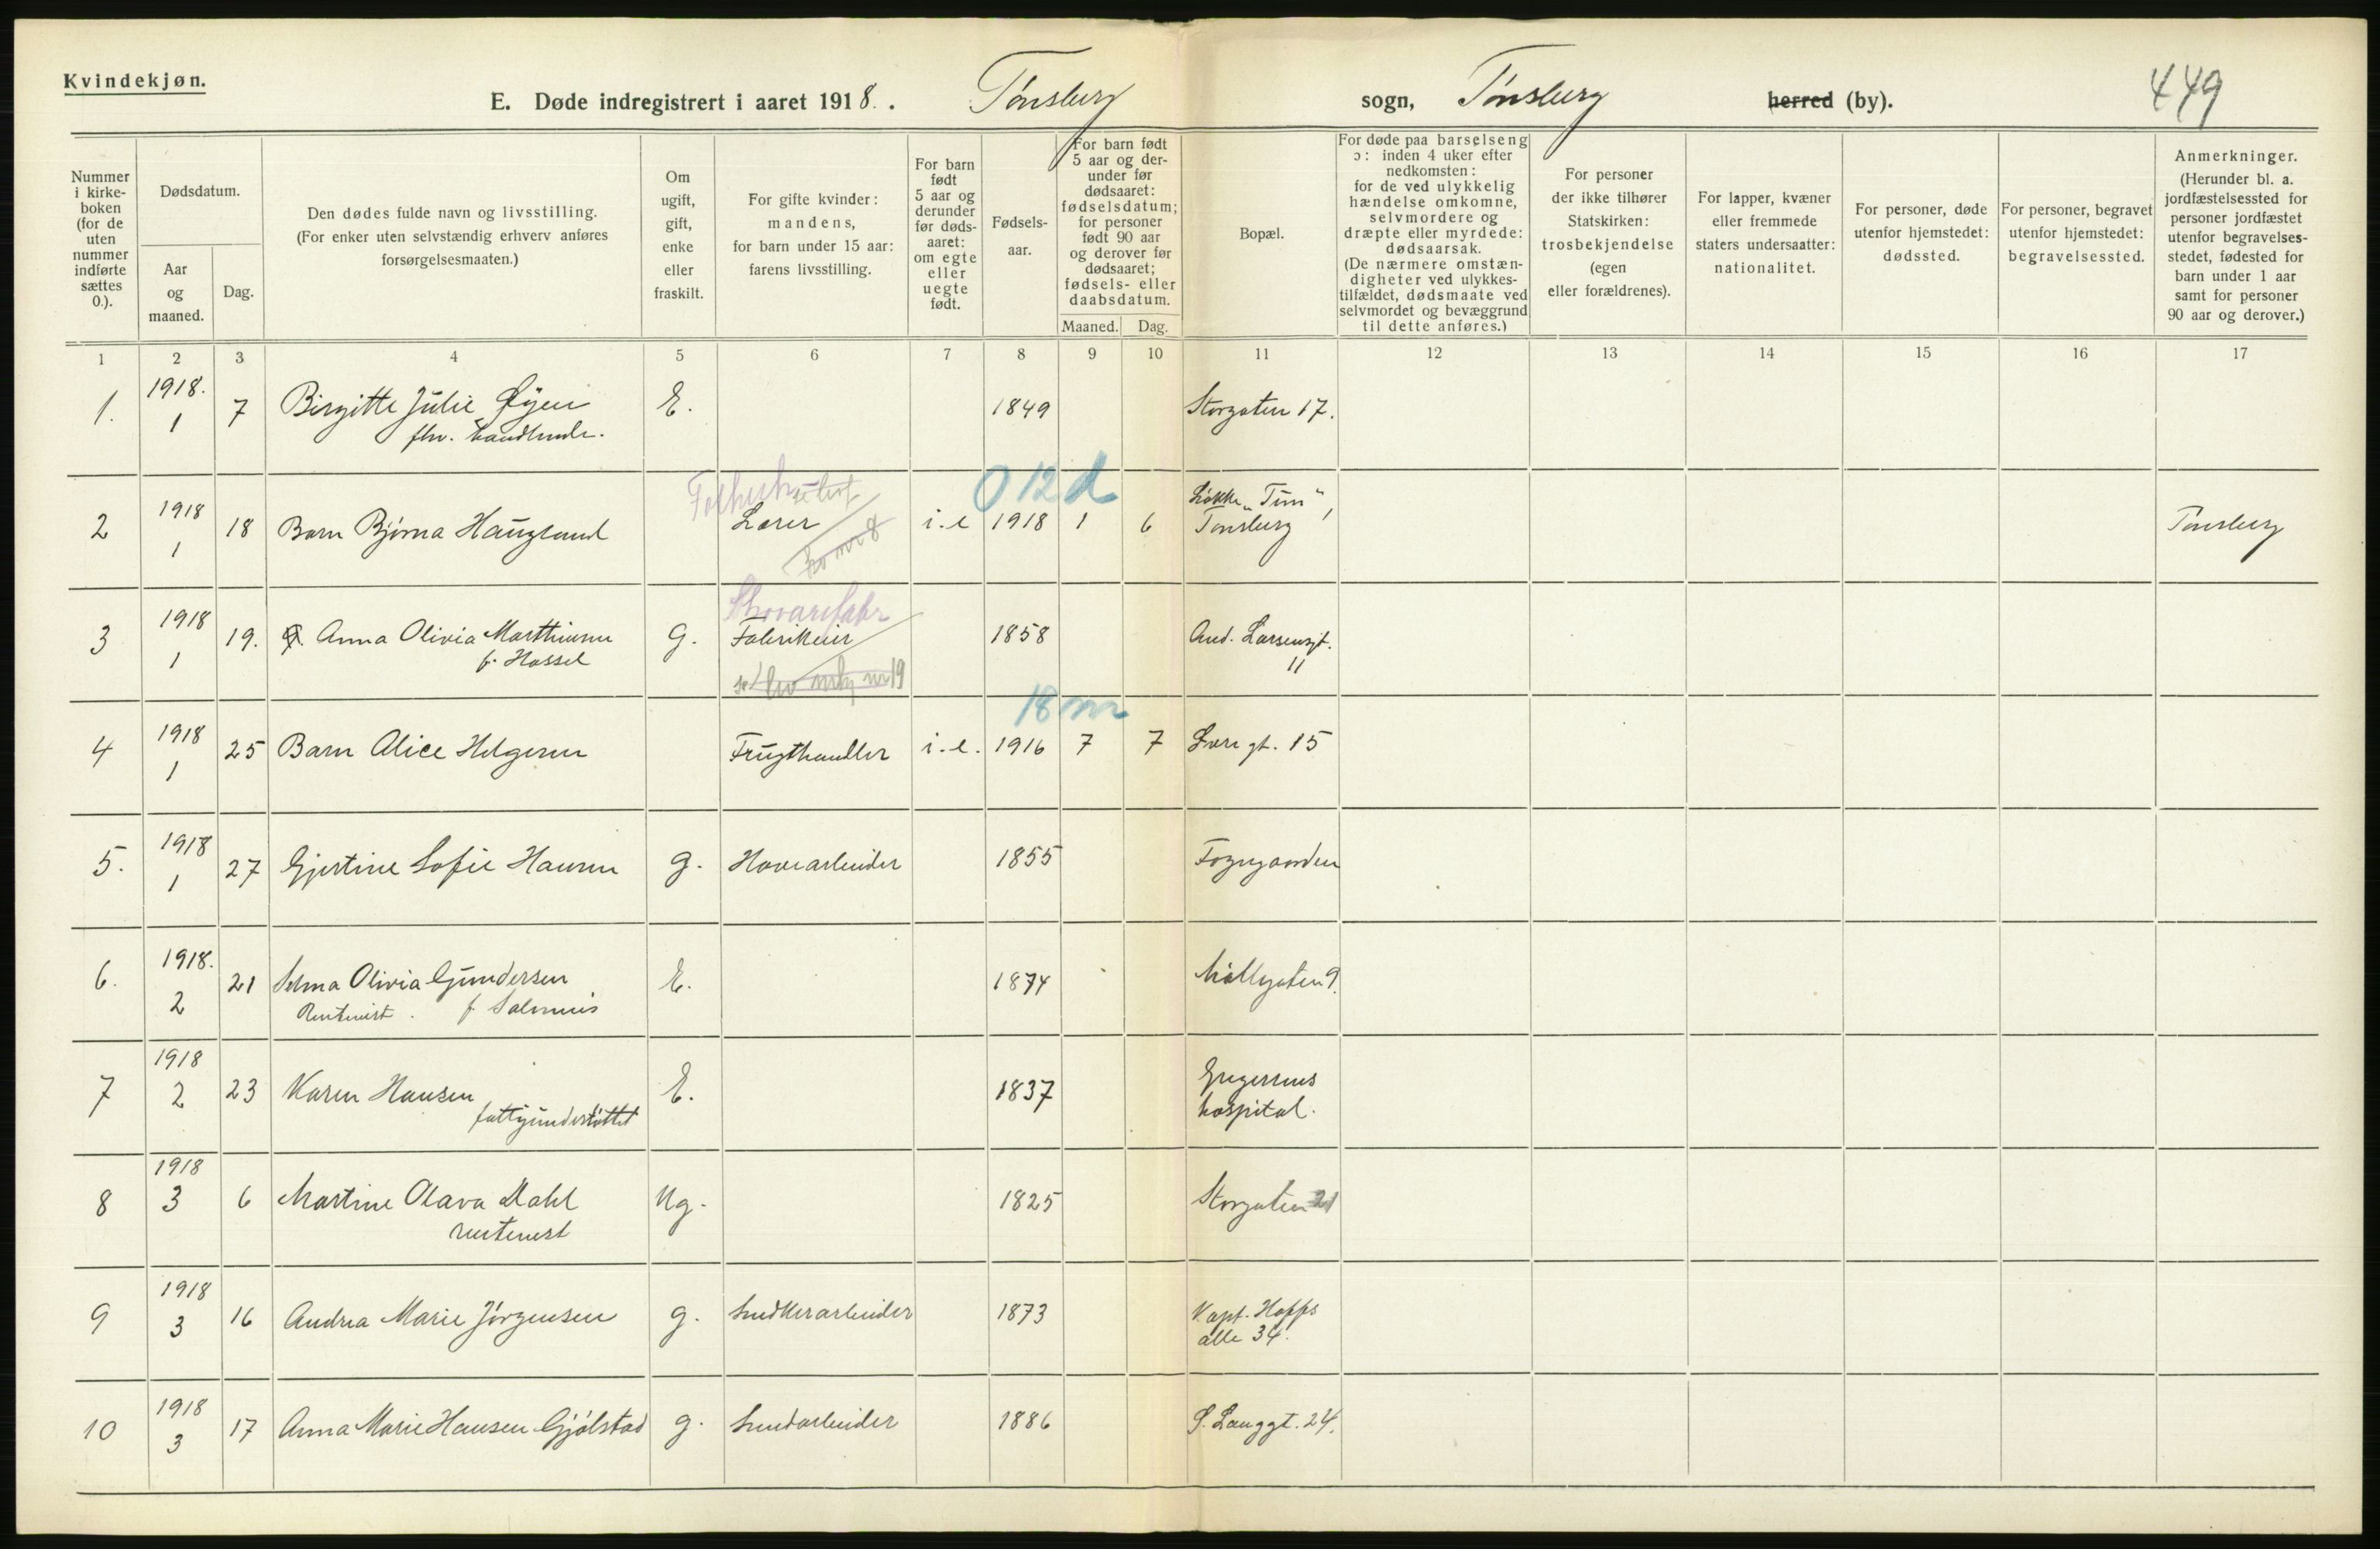 Kvindekjøn.
E. Døde indregistrert i aaret 1918. Tønsberg sogn, Tønsberg herred (by).
449
Nummer i kirke-boken (for de uten nummer indførte sættes 0.).
Dødsdatum.
Aar og maaned.
Dag.
Den dødes fulde navn og livsstilling.
(For enker uten selvstændig erhverv anføres
forsørgelsesmaaten.)
Om ugift, gift, enke eller fraskilt.
For gifte kvinder:
mandens,
for barn under 15 aar:
farens livsstilling.
For barn født 5 aar og derunder før døds-aaret: om egte eller uegte født.
Fødsels-aar.
For barn født 5 aar og der-under før dødsaaret: fødselsdatum; for personer født 90 aar og derover før dødsaaret; fødsels- eller daabsdatum.
Maaned. Dag.
Bopæl.
For døde paa barselseng
ɔ: inden 4 uker efter
nedkomsten:
for de ved ulykkelig
hændelse omkomne,
selvmordere og
dræpte eller myrdede:
dødsaarsak.
(De nærmere omstæn-
digheter ved ulykkes-
tilfældet, dødsmaate ved
selvmordet og bevæggrund
til dette anføres.)
For personer
der ikke tilhører
Statskirken:
trosbekjendelse
(egen
eller forældrenes).
For lapper, kvæner
eller fremmede
staters undersaatter:
nationalitet.
For personer, døde
utenfor hjemstedet:
dødssted.
For personer, begravet
utenfor hjemstedet:
begravelsessted.
Anmerkninger.
(Herunder bl. a.
jordfæstelsessted for
personer jordfæstet
utenfor begravelses-
stedet, fødested for
barn under 1 aar
samt for personer
90 aar og derover.)
1 2 3 4 5 6 7 8 9 10 11 12 13 14 15 16 17
1. 1918. 1 7 Birgitte Julie Øyen E. 1849 Storgaten 17.
fhv. handlende.
Folkesk 0 12 d
2 1918 1 18 Barn Bjørna Haugland Lærer i.e 1918 1 6 Løkke „Tun“, Tønsberg Tønsberg
3 1918 1 19. Anna Olivia Marthinsen g. Fabrikeier 1858 And. Larsensgt. 11
f. Hassel
18 m
4 1918 1 25 Barn Alice Helgesen Frugthandler i.e. 1916 7 7 gt. 15
5. 1918 1 27 Gjertine Sofie Hansen g. Havearbeider 1855
6. 1918. 2 21 Selma Olivia Gundersen E. 1874 Møllegaten 9.
Rentenist. f.
7 1918 2 23 Karen Hansen E. 1837 Gregersens hospital.
fattigunderstøttet
8 1918 3 6 Martine Olava Dahl Ug. 1825 Storgaten 21
rentenist
9 1918 3 16 Andrea Marie Jørgensen g. Snedkerarbeider 1873 Kapt. Hoffs alle 34.
10 1918 3 17 Anna Marie Hansen Gjølstad g. 1886 S. Langgt. 24.